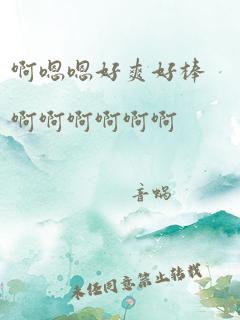 啊嗯嗯好爽好棒
啊啊啊啊啊啊
音蜗
未经同意禁止转载